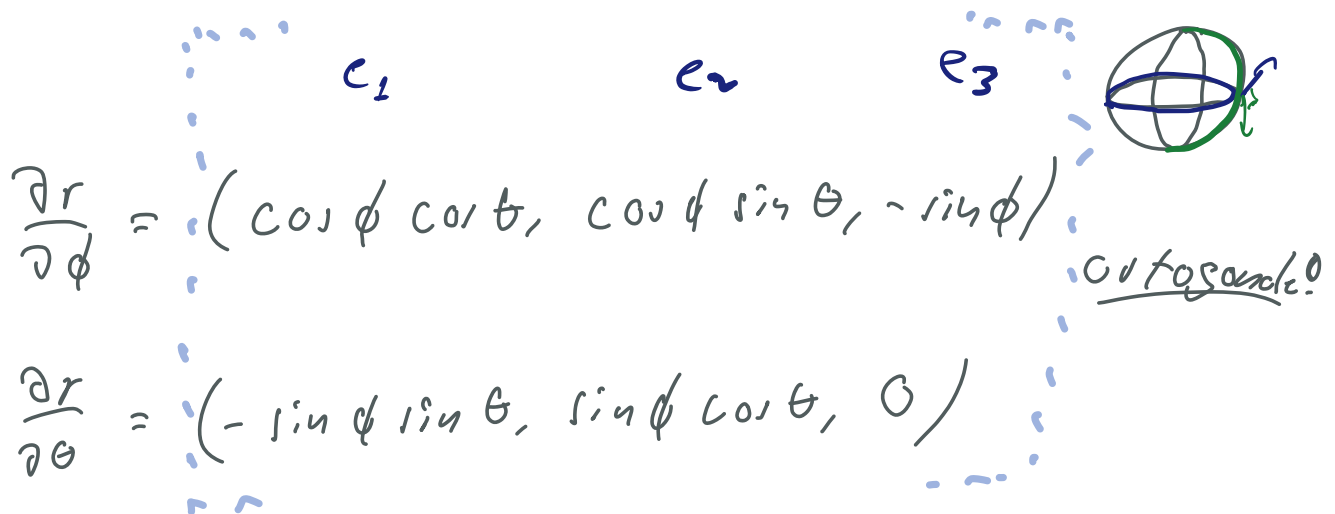 e₁ e₂ e₃
∂r/∂ϕ = (cos ϕ cos θ, cos ϕ sin θ, - sin ϕ)
ortogonale!
∂r/∂θ = (- sin ϕ sin θ, sin ϕ cos θ, 0)